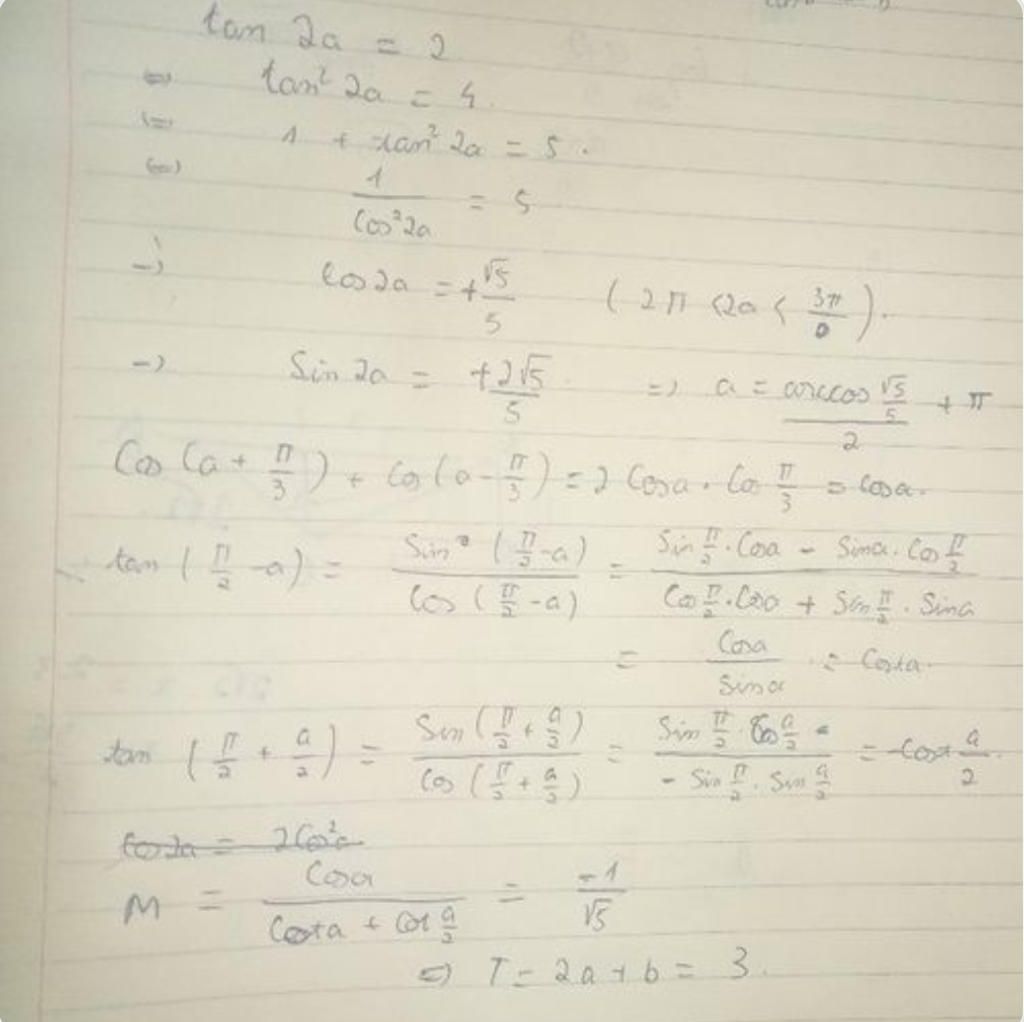 tan 2a = 2
⇔ tan² 2a = 4.
⇔ 1 + tan² 2a = 5.
⇔ 1/cos²2a = 5
→ cos2a = +√5/5 (2π < 2a < 3π/0).
→ Sin 2a = +2√5/5 ⇒ a = arccos √5/5 / 2 + π
Cos (a + π/3) + Cos (a - π/3) = 2 Cosa . Cos π/3 = cosa.
tan (π/2 - a) = Sin (π/2 - a) / Cos (π/2 - a) = Sin π/2 . Cosa - Sina . Cos π/2 / Cos π/2 . Cosa + Sin π/2 . Sina
= Cosa / Sina = Cota.
tan (π/2 + a/2) = Sin (π/2 + a/2) / Cos (π/2 + a/2) = Sin π/2 . Cos a/2 / - Sin π/2 . Sin a/2 = -Cot a/2.
Cos2a = 2Cos²a
M = Cosa / Cota + Cot a/2 = -1/√5
⇔ T = 2a + b = 3.